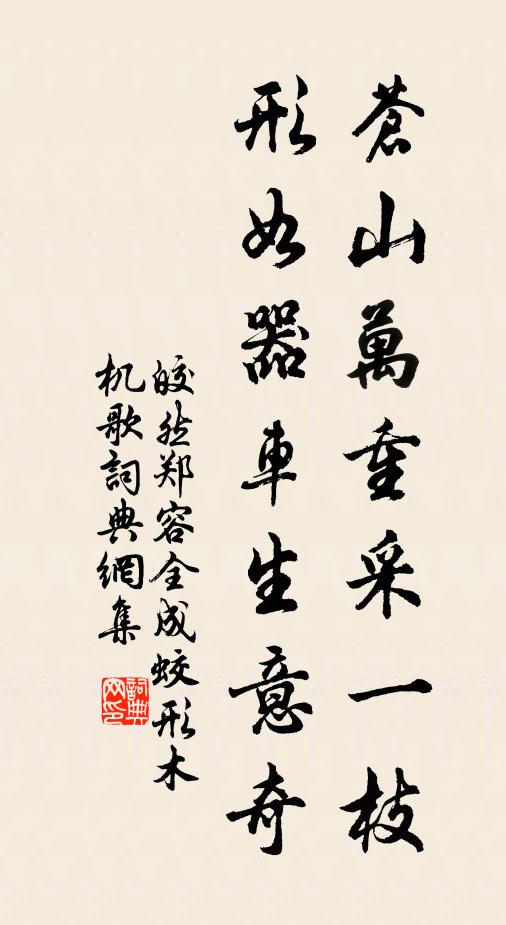 蒼山萬重采一枝
形如器車生意奇
皎然郑容全成蛟形木
机歌詞典網集
詞典网印